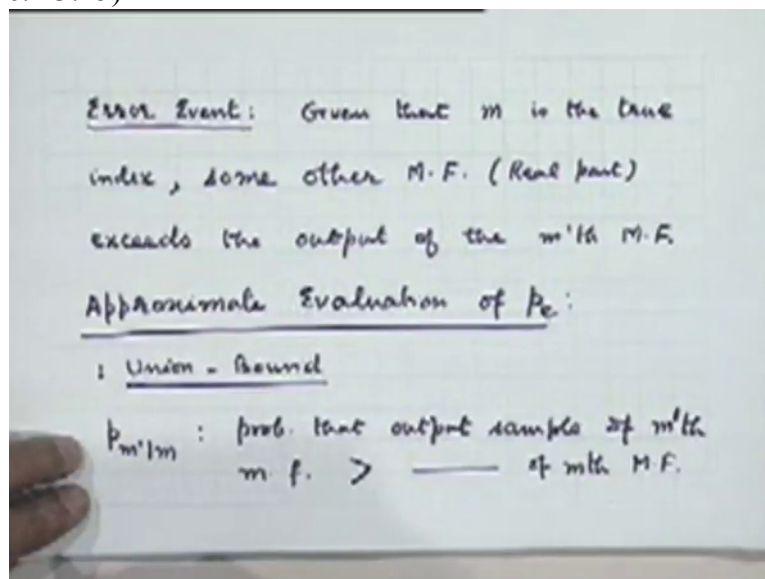 Error Event: Given that m is the true
index, some other M.F. (Real part)
exceeds the output of the m'th M.F.
Approximate Evaluation of Pe:
: Union - Bound
Pm'|m : prob. that output sample of m'th
m.f. > —— of mth M.F.